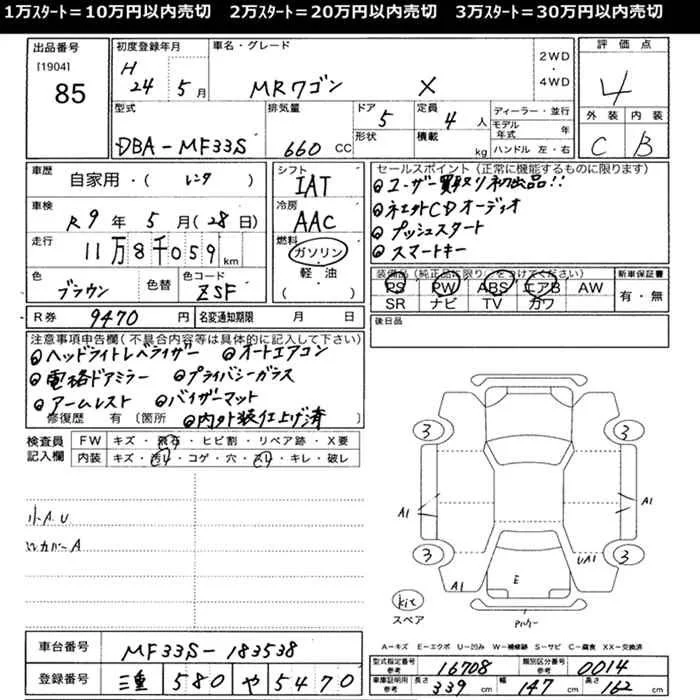 1万スタート＝10万円以内売切　2万スタート＝20万円以内売切　3万スタート＝30万円以内売切
出品番号
[1904]
85
初度登録年月
H 24 5月
車名・グレード
MRワゴン X
2WD・4WD
評価点
4
外装 内装
C B
型式
DBA-MF33S
排気量
660 CC
ドア 5
形状
定員 4人
積載 kg
ディーラー・並行
モデル年式 年
ハンドル 左・右
車歴
自家用・( レンタ )
車検
R9年 5月(28日)
走行
11万8千059km
色
ブラウン
色替
色コード
ZSF
シフト
IAT
冷房
AAC
燃料
ガソリン・軽油
( )
セールスポイント(正常に機能するものに限ります)
ユーザー買取り初出品!!
ネエットCDオーディオ
プッシュスタート
スマートキー
装備品(純正品に限り○をつけてください)
PS PW ABS エアB AW
SR ナビ TV カワ
新車保証書
有・無
R券 9470円
名変通知期限 月 日
後日品
注意事項申告欄(不具合内容等は具体的に記入して下さい)
ヘッドライトレベライザー オートエアコン
電格ドアミラー プライバシーガラス
アームレスト バイザーマット
修復歴 有(箇所 内外装仕上げ済 )
検査員記入欄
FW キズ・飛石・ヒビ割・リペア跡・X要
内装 キズ・汚レ・コゲ・穴・スレ・キレ・破レ
小A.U
カバーA
3 3
A1 A1
3 3
UA1
A1 E
kit
スペア
A－キズ E－エクボ U－凹み W－補修跡 S－サビ C－腐食 XX－交換済
車台番号
MF33S-183538
登録番号
三重 580 や 5470
型式指定番号参考 16708
類別区分番号参考 0014
車庫証明用参考 長さ 339 cm 幅 147 cm 高さ 162 cm